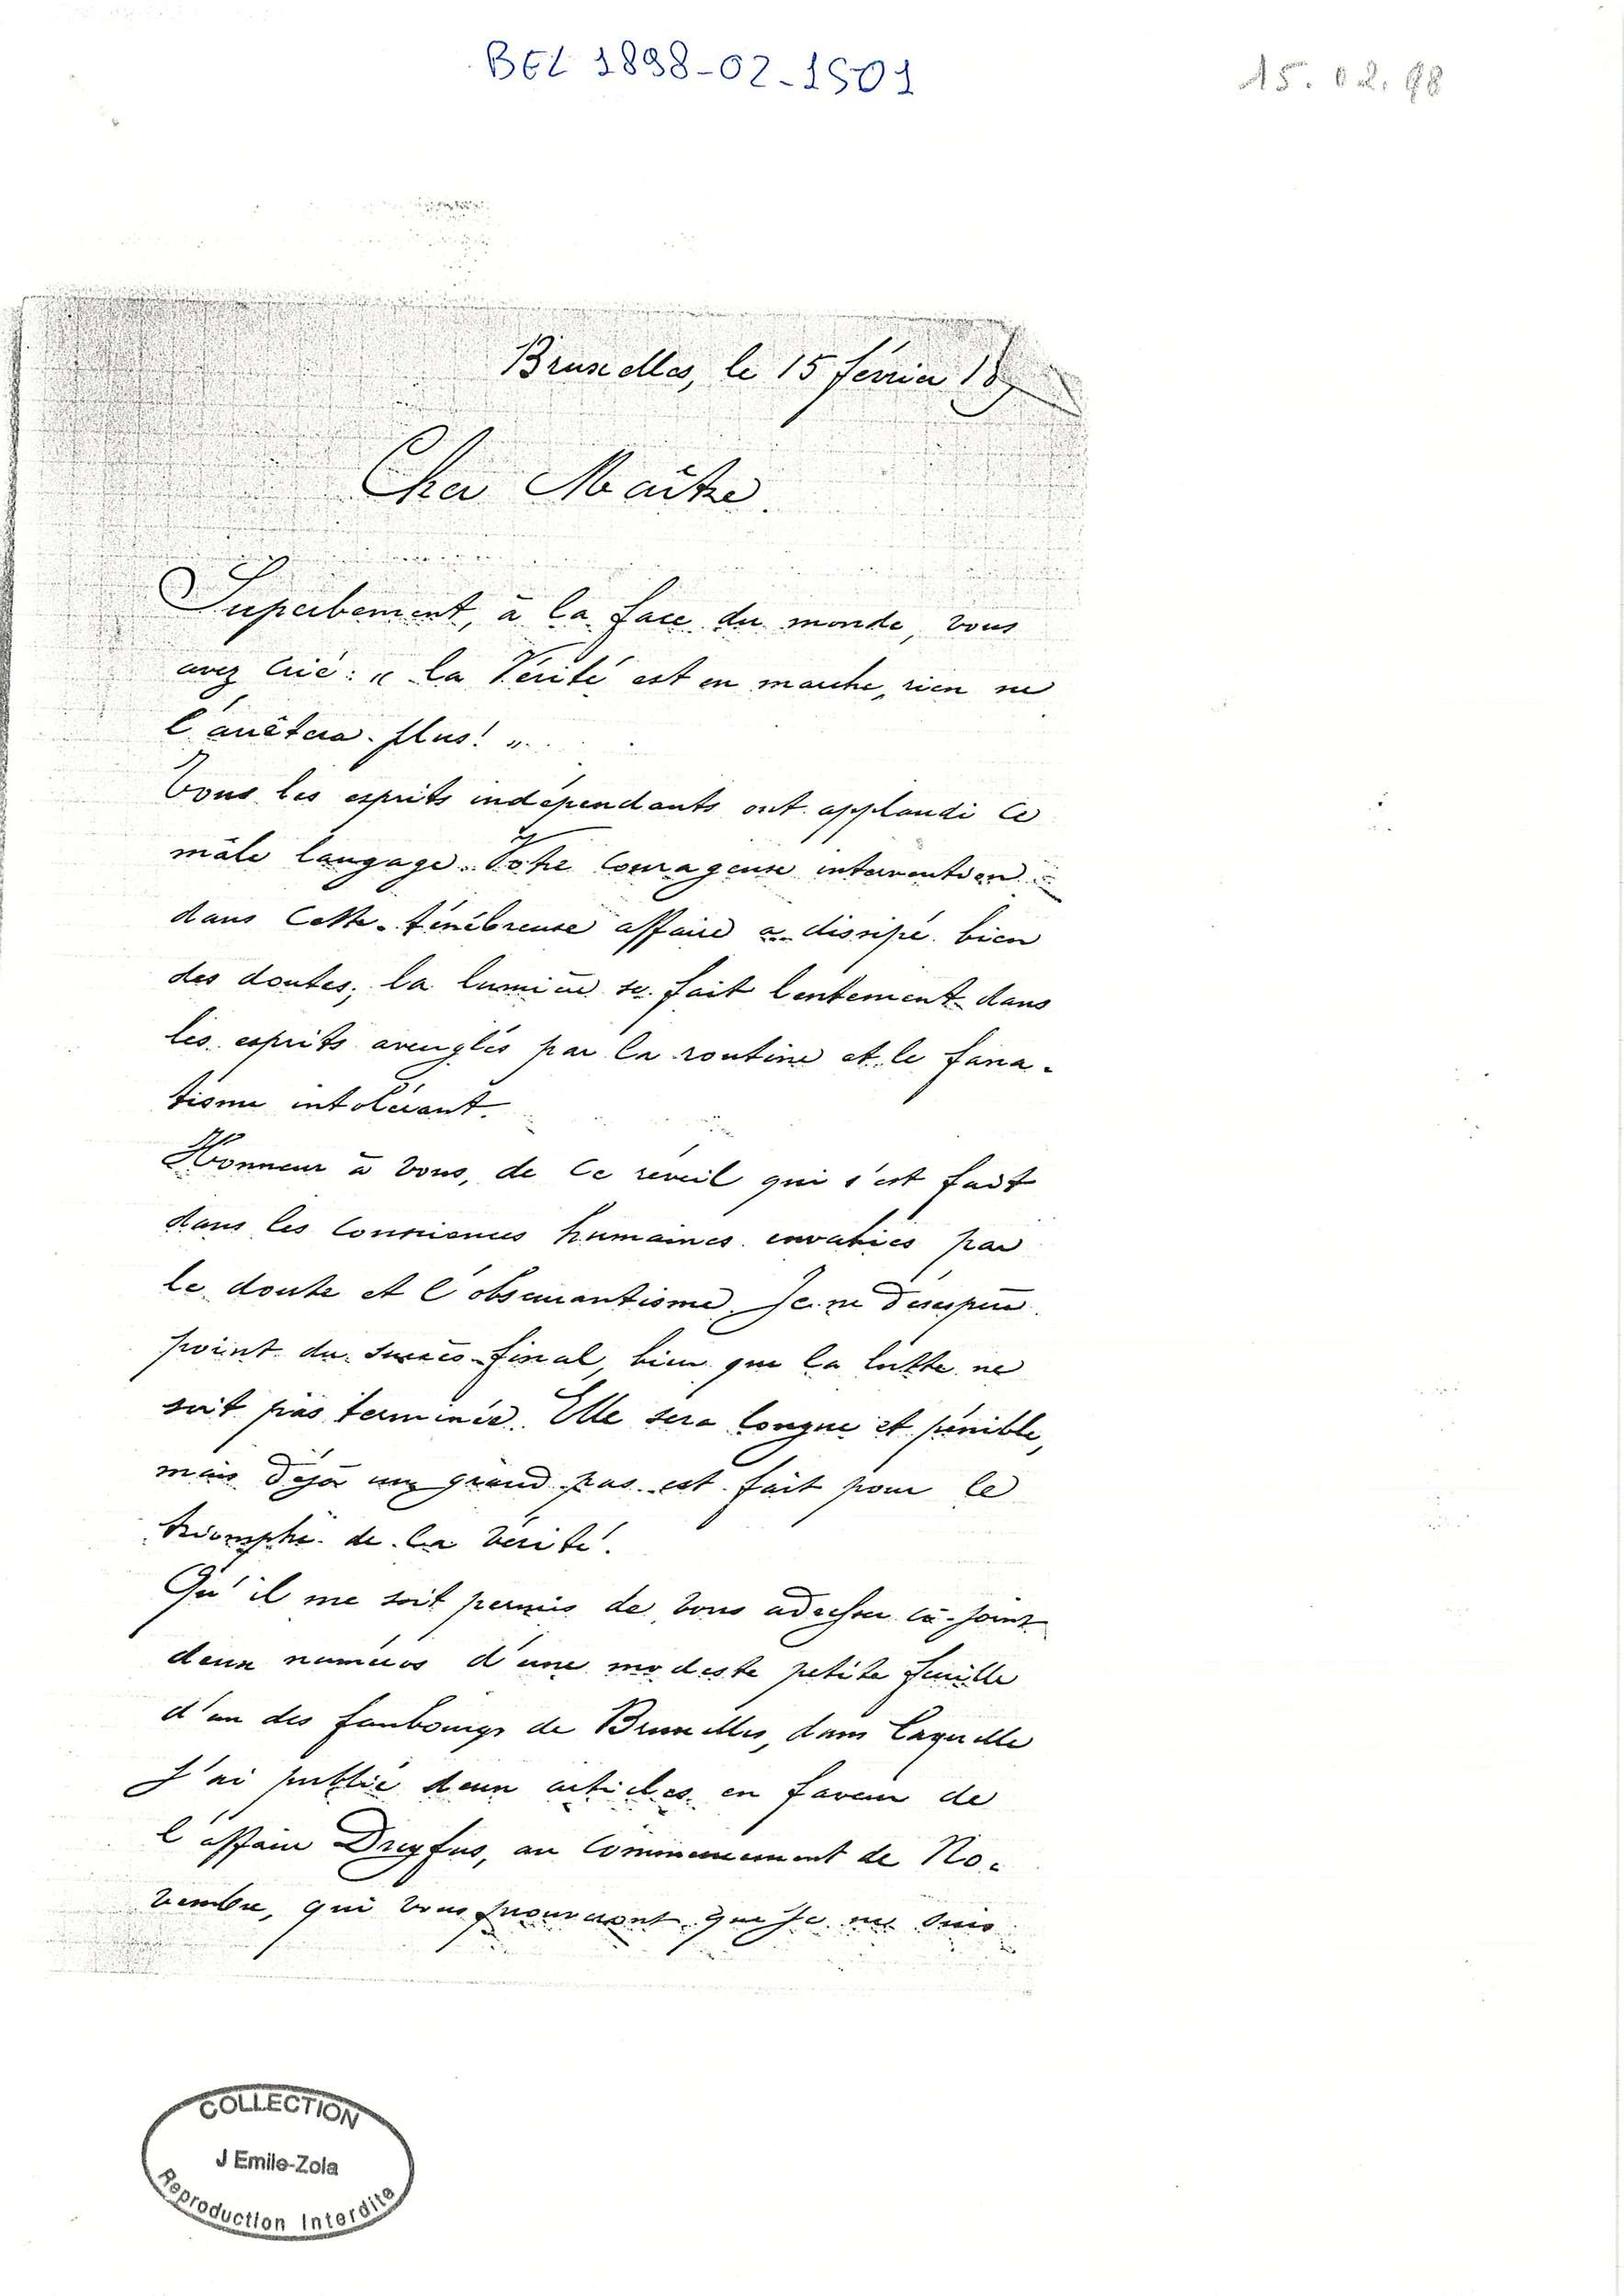 BEL 1898-02-1501
15.02.98
Bruxelles, le 15 février 18
Cher Maître.
Superbement, à la face du monde, vous
avez crié : « la Vérité est en marche, rien ne
l'arrêtera plus! »
Tous les esprits indépendants ont applaudi ce
mâle langage. Votre courageuse intervention
dans cette ténébreuse affaire a dissipé bien
des doutes; la lumière se fait lentement dans
les esprits aveuglés par la routine et le fana-
tisme intolérant.
Honneur à vous, de ce réveil qui s'est fait
dans les consciences humaines envahies par
le doute et l'obscurantisme. Je ne désespère
point du succès final, bien que la lutte ne
soit pas terminée. Elle sera longue et pénible,
mais déjà un grand pas est fait pour le
triomphe de la vérité.
Qu'il me soit permis de vous adresser ci-joint
deux numéros d'une modeste petite feuille
d'un des faubourgs de Bruxelles, dans laquelle
j'ai publié deux articles en faveur de
l'affaire Dreyfus, au commencement de No-
vembre, qui vous prouveront que je ne suis
COLLECTION
J Emile-Zola
Reproduction Interdite